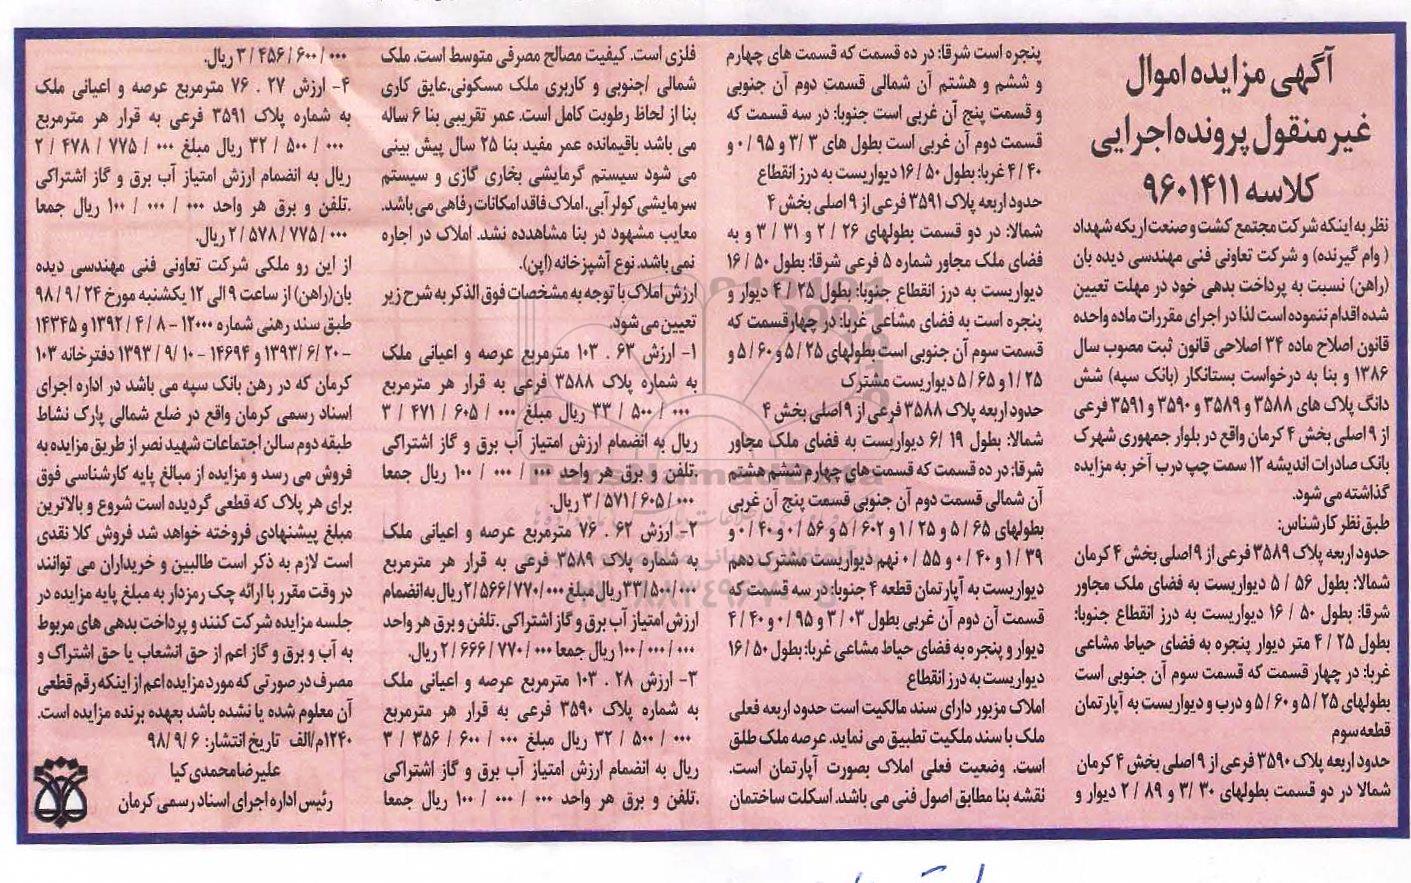 آگهی مزایده اموال
غیرمنقول پرونده اجرایی
کلاسه ۹۶۰۱۴۱۱
نظر به اینکه شرکت مجتمع کشت و صنعت اریکه شهداد
( وام گیرنده) و شرکت تعاونی فنی مهندسی دیده بان
(راهن) نسبت به پرداخت بدهی خود در مهلت تعیین
شده اقدام ننموده است لذا در اجرای مقررات ماده واحده
قانون اصلاح ماده ۳۴ اصلاحی قانون ثبت مصوب سال
۱۳۸۶ و بنا به درخواست بستانکار (بانک سپه) شش
دانگ پلاک های ۳۵۸۸ و ۳۵۸۹ و ۳۵۹۰ و ۳۵۹۱ فرعی
از ۹ اصلی بخش ۴ کرمان واقع در بلوار جمهوری شهرک
بانک صادرات اندیشه ۱۲ سمت چپ درب آخر به مزایده
گذاشته می شود.
طبق نظر کارشناس:
حدود اربعه پلاک ۳۵۸۹ فرعی از ۹ اصلی بخش ۴ کرمان
شمالا: بطول ۵۶ / ۵ دیواریست به فضای ملک مجاور
شرقا: بطول ۵۰ / ۱۶ دیواریست به درز انقطاع جنوبا:
بطول ۲۵ / ۴ متر دیوار پنجره به فضای حیاط مشاعی
غربا: در چهار قسمت که قسمت سوم آن جنوبی است
بطولهای ۲۵ / ۵ و ۶۰ / ۵ و درب و دیواریست به آپارتمان
قطعه سوم
حدود اربعه پلاک ۳۵۹۰ فرعی از ۹ اصلی بخش ۴ کرمان
شمالا در دو قسمت بطولهای ۳۰ /۳ و ۸۹ / ۲ دیوار و
پنجره است شرقا: در ده قسمت که قسمت های چهارم
و ششم و هشتم آن شمالی قسمت دوم آن جنوبی
و قسمت پنج آن غربی است جنوبا: در سه قسمت که
قسمت دوم آن غربی است بطول های ۳ /۳ و ۹۵ / ۰ و
۴۰ / ۴ غربا: بطول ۵۰ / ۱۶ دیواریست به درز انقطاع
حدود اربعه پلاک ۳۵۹۱ فرعی از ۹ اصلی بخش ۴
شمالا: در دو قسمت بطولهای ۲۶ / ۲ و ۳۱ / ۳ و به
فضای ملک مجاور شماره ۵ فرعی شرقا: بطول ۵۰ / ۱۶
دیواریست به درز انقطاع جنوبا: بطول ۲۵ / ۴ دیوار و
پنجره است به فضای مشاعی غربا: در چهارقسمت که
قسمت سوم آن جنوبی است بطولهای ۲۵ / ۵ و ۶۰ / ۵ و
۲۵ / ۱ و ۶۵ / ۵ دیواریست مشترک
حدود اربعه پلاک ۳۵۸۸ فرعی از ۹ اصلی بخش ۴
شمالا: بطول ۱۹ /۶ دیواریست به فضای ملک مجاور
شرقا: در ده قسمت که قسمت های چهارم ششم هشتم
آن شمالی قسمت دوم آن جنوبی قسمت پنج آن غربی
بطولهای ۶۵ / ۵ و ۲۵ / ۱ و ۶۰۲ / ۵ و ۵۶ / ۰ و ۴۰ / ۰ و
۳۹ / ۱ و ۴۰ / ۰ و ۵۵ / ۰ نهم دیواریست مشترک دهم
دیواریست به آپارتمان قطعه ۴ جنوبا: در سه قسمت که
قسمت آن دوم آن غربی بطول ۰۳ / ۳ و ۹۵ / ۰ و ۴۰ / ۴
دیوار و پنجره به فضای حیاط مشاعی غربا: بطول ۵۰ / ۱۶
دیواریست به درز انقطاع
املاک مزبور دارای سند مالکیت است حدود اربعه فعلی
ملک با سند ملکیت تطبیق می نماید. عرصه ملک طلق
است. وضعیت فعلی املاک بصورت آپارتمان است.
نقشه بنا مطابق اصول فنی می باشد. اسکلت ساختمان
فلزی است. کیفیت مصالح مصرفی متوسط است. ملک
شمالی /جنوبی و کاربری ملک مسکونی.عایق کاری
بنا از لحاظ رطوبت کامل است. عمر تقریبی بنا ۶ ساله
می باشد باقیمانده عمر مفید بنا ۲۵ سال پیش بینی
می شود سیستم گرمایشی بخاری گازی و سیستم
سرمایشی کولر آبی. املاک فاقد امکانات رفاهی می باشد.
معایب مشهود در بنا مشاهدده نشد. املاک در اجاره
نمی باشد. نوع آشپزخانه (اپن).
ارزش املاک با توجه به مشخصات فوق الذکر به شرح زیر
تعیین می شود.
۱- ارزش ۶۳ . ۱۰۳ مترمربع عرصه و اعیانی ملک
به شماره پلاک ۳۵۸۸ فرعی به قرار هر مترمربع
۰۰۰ / ۵۰۰ / ۳۳ ریال مبلغ ۰۰۰ / ۶۰۵ / ۴۷۱ / ۳
ریال به انضمام ارزش امتیاز آب برق و گاز اشتراکی
.تلفن و برق هر واحد ۰۰۰ / ۰۰۰ / ۱۰۰ ریال جمعا
۰۰۰ / ۶۰۵ / ۵۷۱ / ۳ ریال.
۲- ارزش ۶۲ . ۷۶ مترمربع عرصه و اعیانی ملک
به شماره پلاک ۳۵۸۹ فرعی به قرار هر مترمربع
۳۳/۵۰۰/۰۰۰ ریال مبلغ ۲/۵۶۶/۷۷۰/۰۰۰ ریال به انضمام
ارزش امتیاز آب برق و گاز اشتراکی .تلفن و برق هر واحد
۰۰۰ / ۰۰۰ / ۱۰۰ ریال جمعا ۰۰۰ / ۷۷۰ / ۶۶۶ / ۲ ریال.
۳- ارزش ۲۸ . ۱۰۳ مترمربع عرصه و اعیانی ملک
به شماره پلاک ۳۵۹۰ فرعی به قرار هر مترمربع
۰۰۰ / ۵۰۰ / ۳۲ ریال مبلغ ۰۰۰ / ۶۰۰ / ۳۵۶ / ۳
ریال به انضمام ارزش امتیاز آب برق و گاز اشتراکی
.تلفن و برق هر واحد ۰۰۰ / ۰۰۰ / ۱۰۰ ریال جمعا
۰۰۰ / ۶۰۰ / ۴۵۶ / ۳ ریال.
۴- ارزش ۲۷ . ۷۶ مترمربع عرصه و اعیانی ملک
به شماره پلاک ۳۵۹۱ فرعی به قرار هر مترمربع
۰۰۰ / ۵۰۰ / ۳۲ ریال مبلغ ۰۰۰ / ۷۷۵ / ۴۷۸ / ۲
ریال به انضمام ارزش امتیاز آب برق و گاز اشتراکی
.تلفن و برق هر واحد ۰۰۰ / ۰۰۰ / ۱۰۰ ریال جمعا
۰۰۰ / ۷۷۵ / ۵۷۸ / ۲ ریال.
از این رو ملکی شرکت تعاونی فنی مهندسی دیده
بان(راهن) از ساعت ۹ الی ۱۲ یکشنبه مورخ ۲۴ / ۹ / ۹۸
طبق سند رهنی شماره ۱۲۰۰۰ - ۸ / ۴ / ۱۳۹۲ و ۱۴۳۴۵
- ۲۰ / ۶ / ۱۳۹۳ و ۱۴۶۹۴ - ۱۰ / ۹ / ۱۳۹۳ دفترخانه ۱۰۳
کرمان که در رهن بانک سپه می باشد در اداره اجرای
اسناد رسمی کرمان واقع در ضلع شمالی پارک نشاط
طبقه دوم سالن اجتماعات شهید نصر از طریق مزایده به
فروش می رسد و مزایده از مبالغ پایه کارشناسی فوق
برای هر پلاک که قطعی گردیده است شروع و بالاترین
مبلغ پیشنهادی فروخته خواهد شد فروش کلا نقدی
است لازم به ذکر است طالبین و خریداران می توانند
در وقت مقرر با ارائه چک رمزدار به مبلغ پایه مزایده در
جلسه مزایده شرکت کنند و پرداخت بدهی های مربوط
به آب و برق و گاز اعم از حق انشعاب یا حق اشتراک و
مصرف در صورتی که مورد مزایده اعم از اینکه رقم قطعی
آن معلوم شده یا نشده باشد بعهده برنده مزایده است.
۱۲۴۰م/الف تاریخ انتشار: ۹۸/۹/۶
علیرضا محمدی کیا
رئیس اداره اجرای اسناد رسمی کرمان